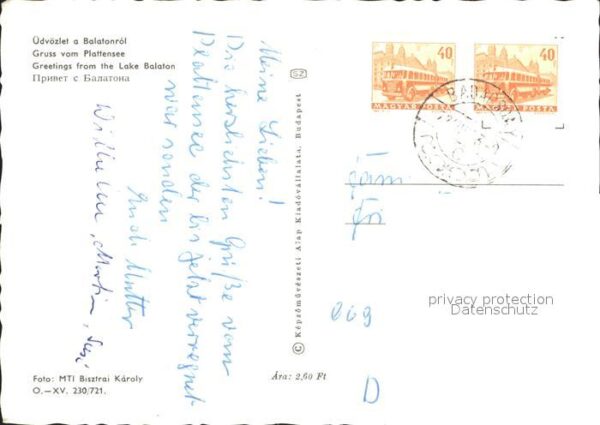 Üdvözlet a Balatonról
Gruss vom Plattensee
Greetings from the Lake Balaton
Привет с Балатона
40
MAGYAR POSTA
40
MAGYAR POSTA
SZ
Meine Lieben!
Die herzlichsten Grüße vom
Plattensee der bis jetzt verregnet
war senden
Eure Mutter
Wilhelm, Martin,
© Képzőművészeti Alap Kiadóvállalata, Budapest
privacy protection
Datenschutz
D
Foto: MTI Bisztrai Károly
O.—XV. 230/721.
Ára: 2,60 Ft